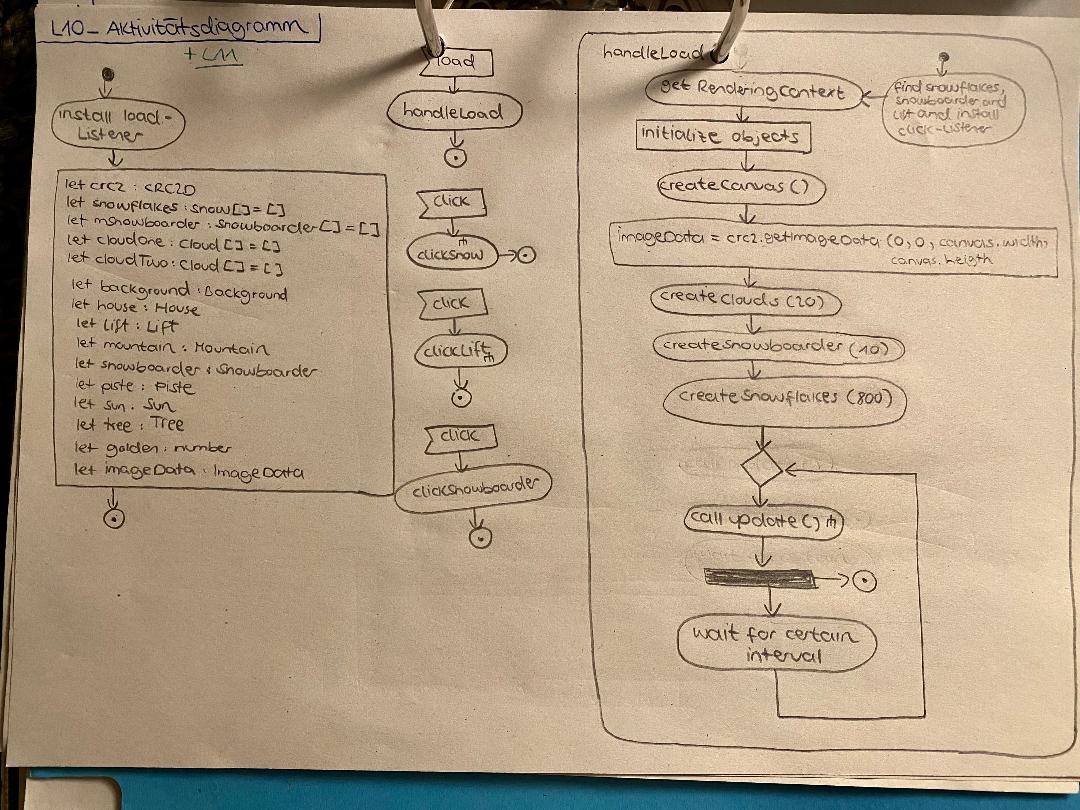 L10_Aktivitätsdiagramm
+ LM
install load-
Listener
let crc2 : CRC2D
let snowflakes : Snow[] = []
let mSnowboarder : Snowboarder[] = []
let cloudOne : Cloud[] = []
let cloudTwo : Cloud[] = []
let background : Background
let house : House
let lift : Lift
let mountain : Mountain
let snowboarder : Snowboarder
let piste : Piste
let sun : Sun
let tree : Tree
let golden : number
let imageData : ImageData
load
handleLoad
click
clickSnow
click
clickLift
click
clickSnowboarder
handleLoad
get RenderingContext
find snowflakes,
snowboarder and
Lift and install
click-Listener
initialize objects
createCanvas()
imageData = crc2.getImageData (0, 0, canvas.width,
canvas.heigth
createClouds (20)
createSnowboarder (10)
createSnowflakes (800)
call update()
wait for certain
interval